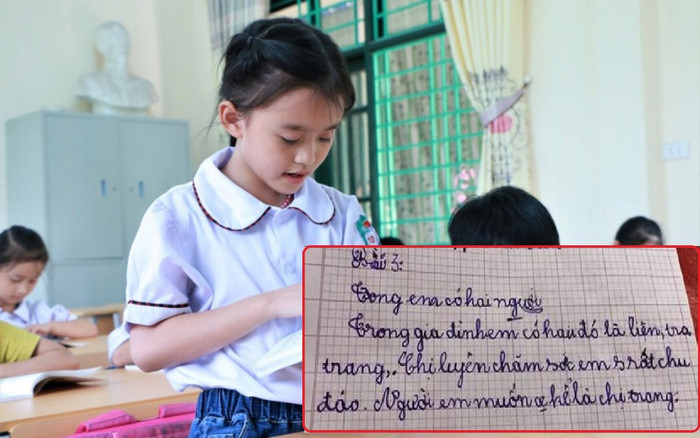 Bài 3:
Tong em có hai người
Trong gia đình em có hau đó là liên, tra
trang,. Chị luyên chăm sơc em s rất chu
đáo. Người em muốn ọ hể là chị trang.
10